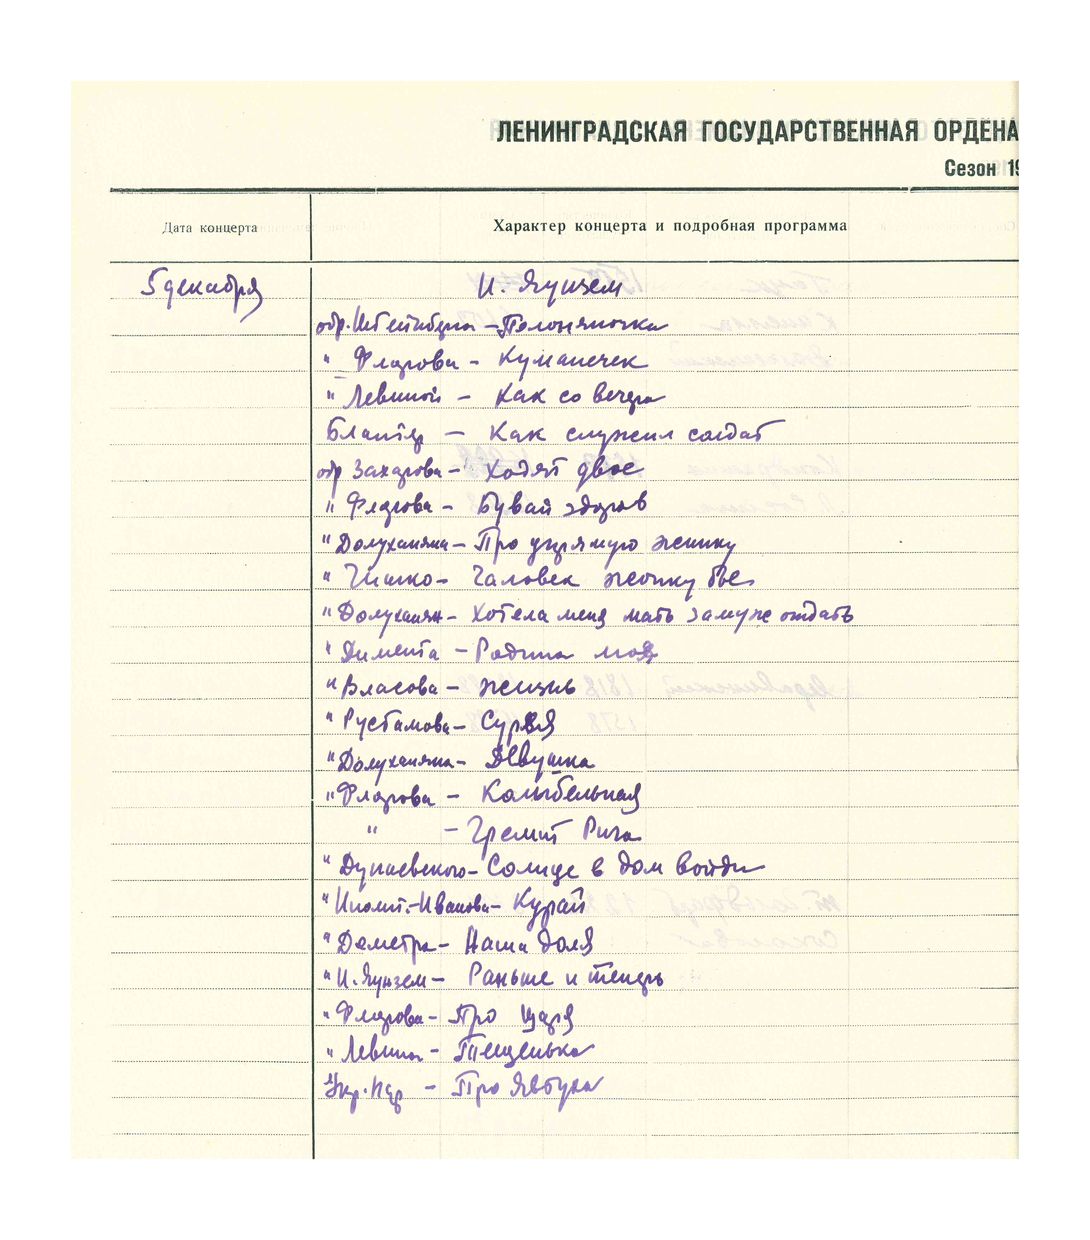 ЛЕНИНГРАДСКАЯ ГОСУДАРСТВЕННАЯ ОРДЕНА
Сезон 19
Дата концерта Характер концерта и подробная программа
5 декабря И. Яунзем
обр. Штейнберга – Полоняночка
" Фларова – Куманечек
" Левиной – Как со вечера
Блантер – Как служил солдат
обр Захарова – Ходят двое
" Фларова – Бувай здоров
" Долуханяна – Про упрямую женку
" Чишко – Чаловек жонку бье
" Долуханян – Хотела меня мать замуж отдать
" Димента – Родина моя
" Власова – Жизнь
" Рустамова – Сурея
" Долуханяна – Девушка
" Фларова – Колыбельная
" – Гремит Рига
" Дунаевского – Солнце в дом войди
" Иполит.-Иванова – Курай
" Деметра – Наша доля
" И. Яунзем – Раньше и теперь
" Фларова – Про царя
" Левина – Тещенька
Укр. нар – Про Явтуха